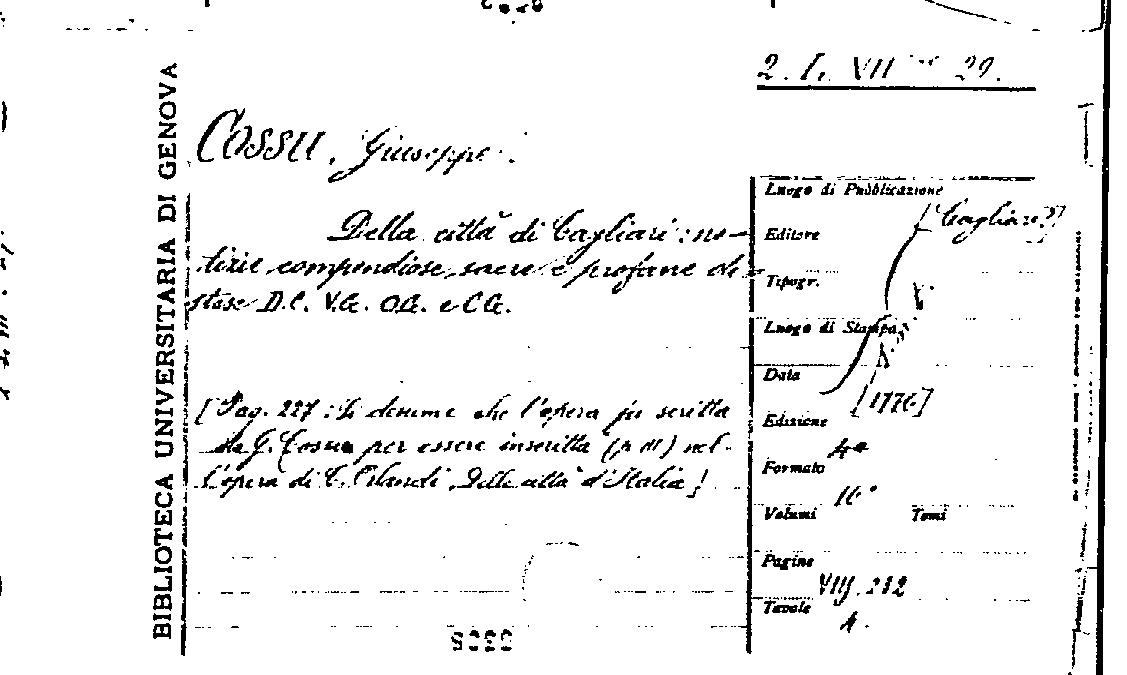 2. I. VII 29.
BIBLIOTECA UNIVERSITARIA DI GENOVA
COSSU, Giuseppe.
Della città di Cagliari: no-
tizie compendiose sacre e profane di-
stese D.C. V.G. O.G. e C.G.
[Pag. 227: Si desume che l'opera fu scritta
da G. Cossu per essere inserita (p III) nel-
l'opera di C. Orlandi, Delle città d'Italia]
Luogo di Pubblicazione
[Cagliari?]
Editore
Tipogr.
Luogo di Stampa
Data
[1776]
Edizione
Formato 4°
Volumi 16° Tomi
Pagine
VIIJ. 212
Tavole